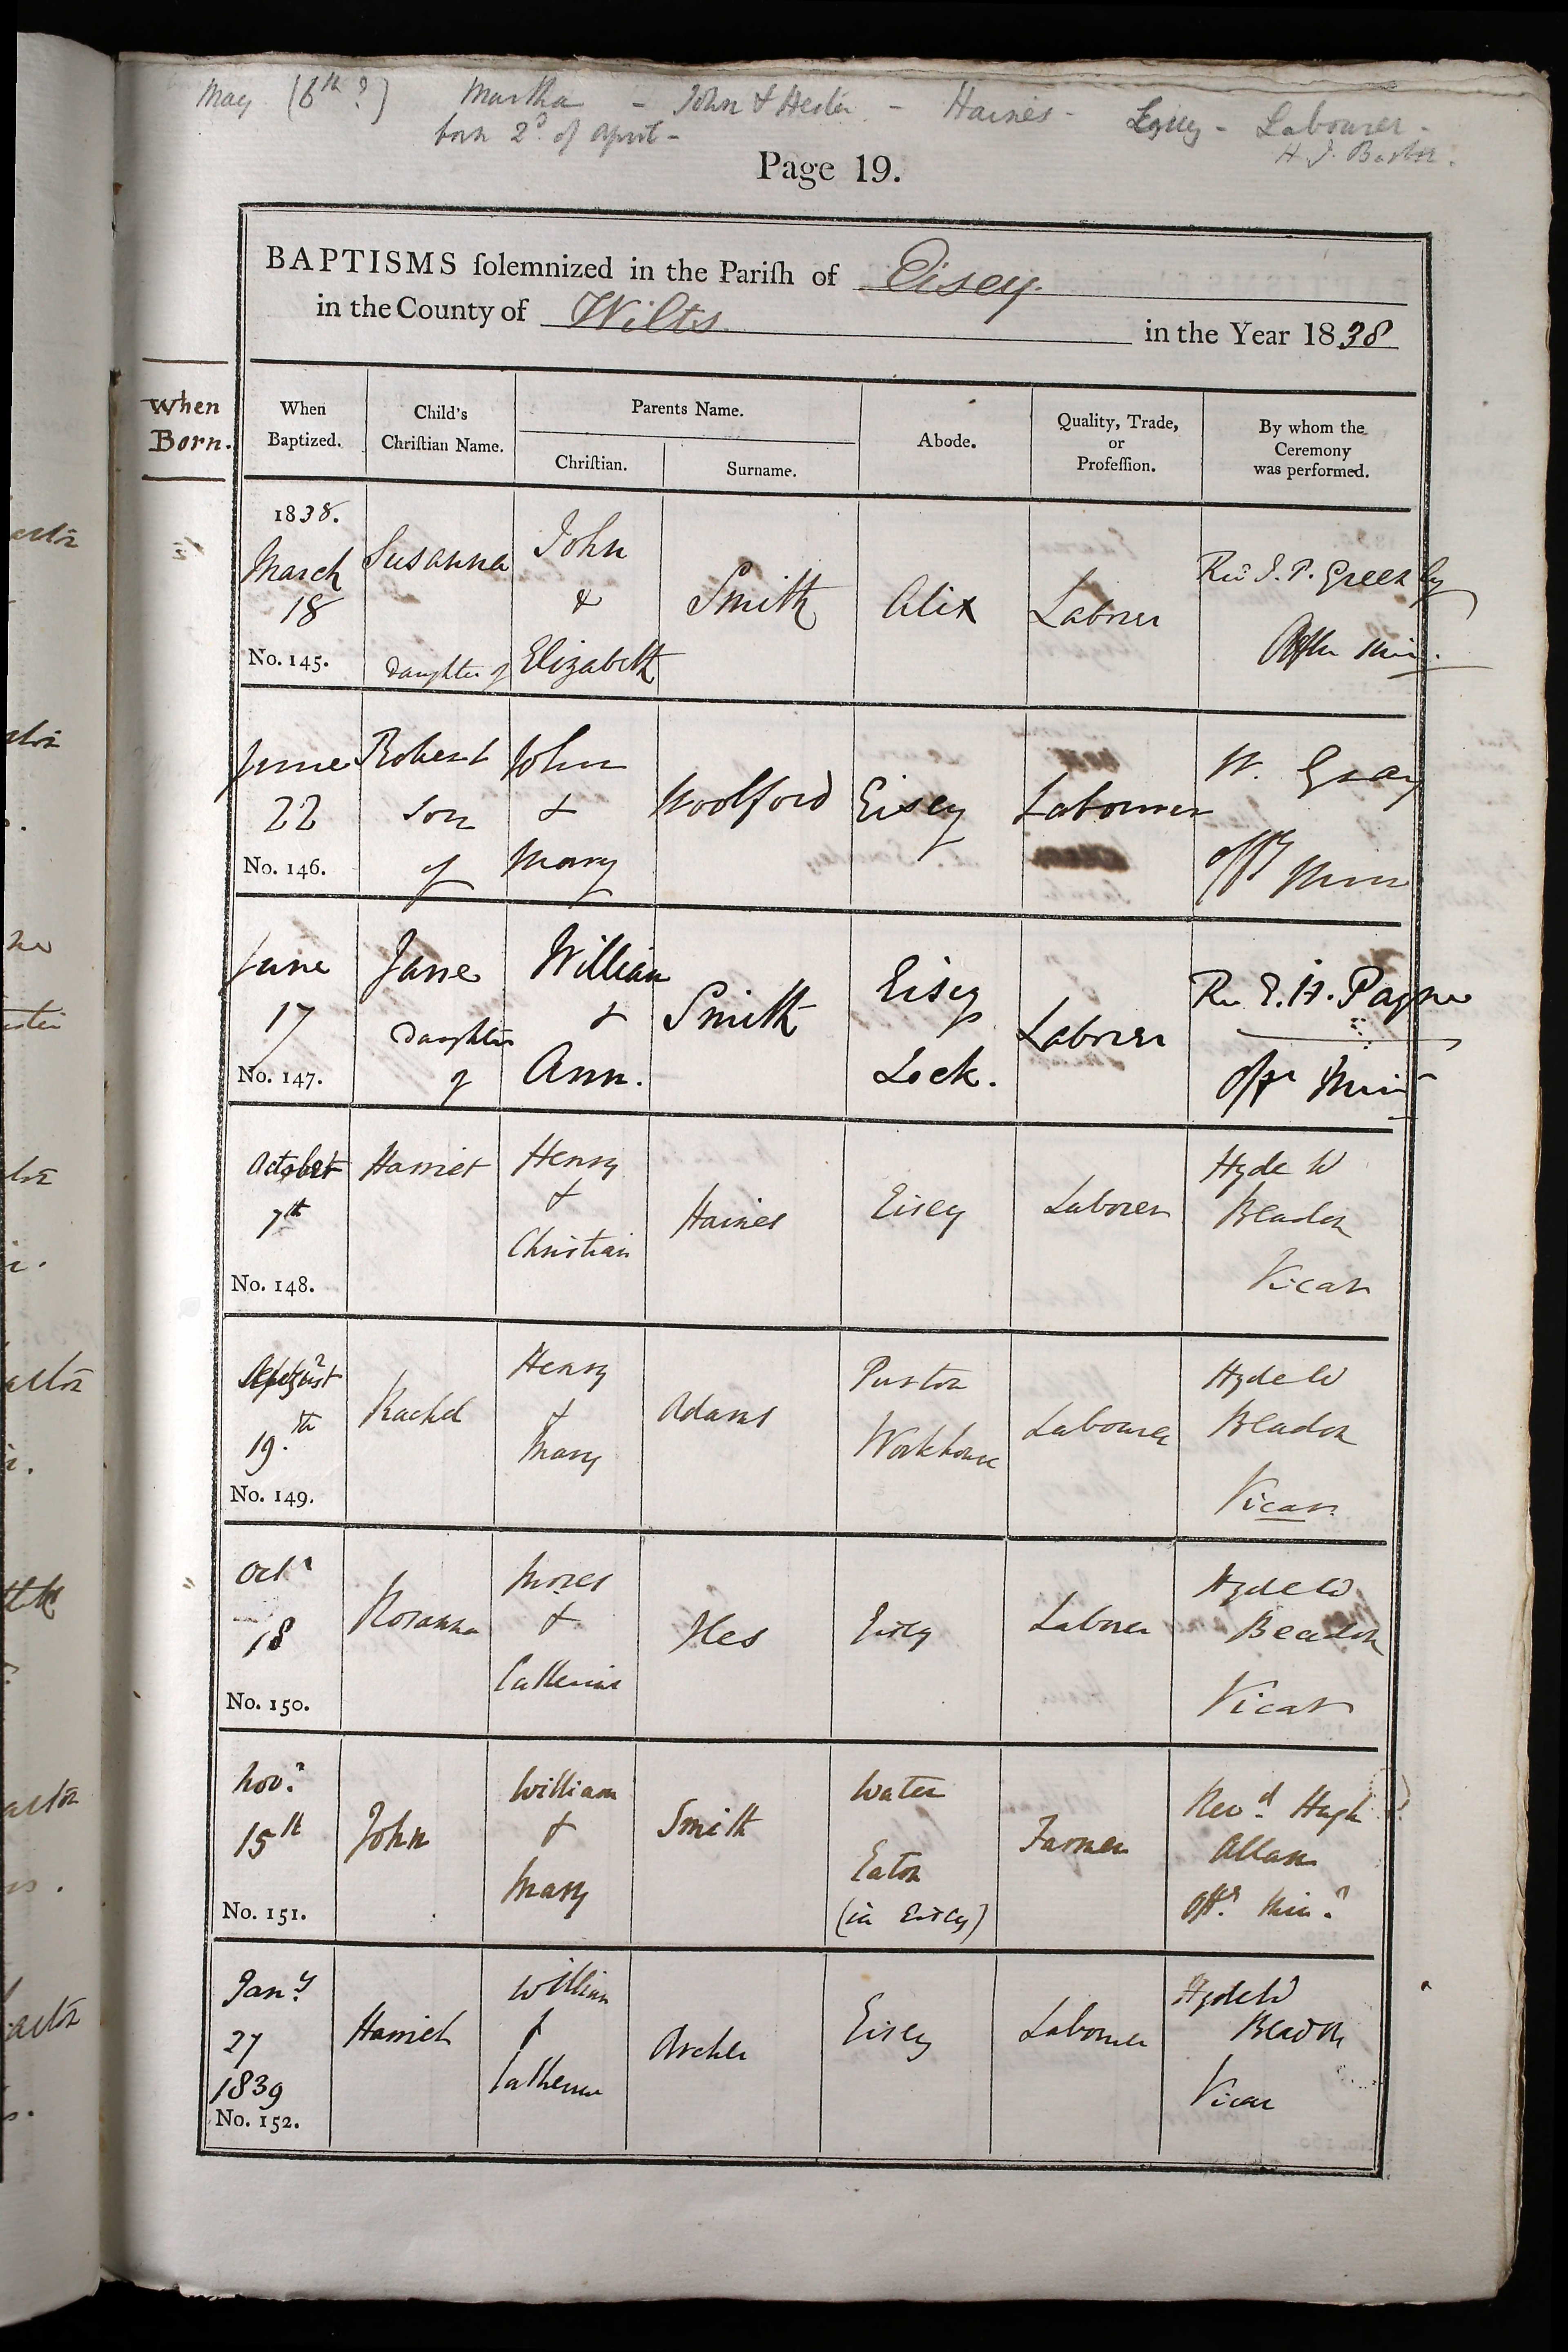 May (6th?) Martha - John & Hester - Haines - Eysey - Labourer -
born 2d of April -
H. J. Barton.
Page 19.
BAPTISMS ſolemnized in the Pariſh of Eisey
in the County of Wilts in the Year 1838
When
Born.
When
Baptized.
Child's
Chriſtian Name.
Parents Name.
Chriſtian.
Surname.
Abode.
Quality, Trade,
or
Profeſſion.
By whom the
Ceremony
was performed.
1838.
March
18
No. 145.
Susanna
Daughter of
John
&
Elizabeth
Smith
Alix
Labrer
Revd J. P. Greenly
Offr Min.
June
22
No. 146.
Robert
son
of
John
&
Mary
Woolford
Eisey
Labourer
W. Gray
offg Minr
June
17
No. 147.
Jane
Daughter
of
William
&
Ann.
Smith
Eisey
Lock.
Labrer
Rev E. H. Payne
Offr Minr
October
7th
No. 148.
Harriet
Henry
&
Christian
Haines
Eisey
Laborer
Hyde W
Beadon
Vicar
19.th
No. 149.
Rachel
Henry
&
Mary
Adams
Purton
Workhouse
Labourer
Hyde W
Beadon
Vicar
Octr
18
No. 150.
Rosanna
Moses
&
Catherine
Iles
Eisey
Laborer
Hyde W
Beadon
Vicar
Novr
15th
No. 151.
John
William
&
Mary
Smith
Water
Eaton
(in Eisey)
Farmer
Revd Hugh
Allan
Offg Minr
Jany
27
1839
No. 152.
Harriet
William
&
Catherine
Archer
Eisey
Labourer
Hyde W
Beadon
Vicar